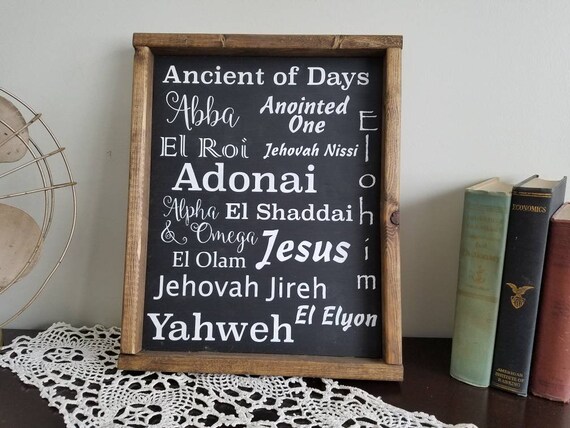 Ancient of Days
Abba
Anointed
One
El Roi
Jehovah Nissi
Elohim
Adonai
Alpha
& Omega
El Shaddai
Jesus
El Olam
Jehovah Jireh
El Elyon
Yahweh
ECONOMICS
AMERICAN
INSTITUTE OF
BANKING